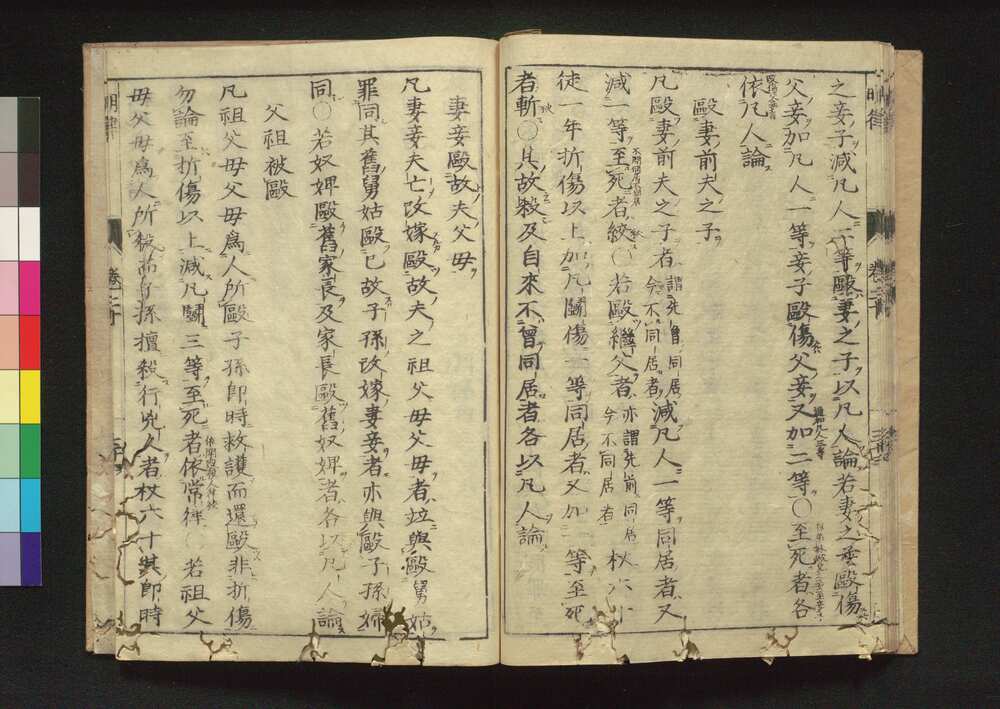 之妾子減凡人二等毆妻之子以凡人論若妻之子毆傷
父妾加凡人一等妾子毆傷父妾又加二等〇至死者各
依凡人論
毆妻前夫之子
凡毆妻前夫之子者謂先曾同居今不同居者減凡人一等同居者又
減一等至死者絞〇若毆繼父者亦謂先前同居今不同居者杖六十
徒一年折傷以上加凡鬬傷一等同居者又加一等至死
者斬〇其故殺及自來不曾同居者各以凡人論
妻妾毆故夫父母
凡妻妾夫亡改嫁毆故夫之祖父母父母者竝與毆舅姑
罪同其舊舅姑毆已故子孫改嫁妻妾者亦與毆子孫婦
同〇若奴婢毆舊家長及家長毆舊奴婢者各以凡人論
父祖被毆
凡祖父母父母爲人所毆子孫即時救護而還毆非折傷
勿論至折傷以上減凡鬬三等至死者依常律〇若祖父
母父母爲人所殺而子孫擅殺行兇人者杖六十其即時
明律
卷二十